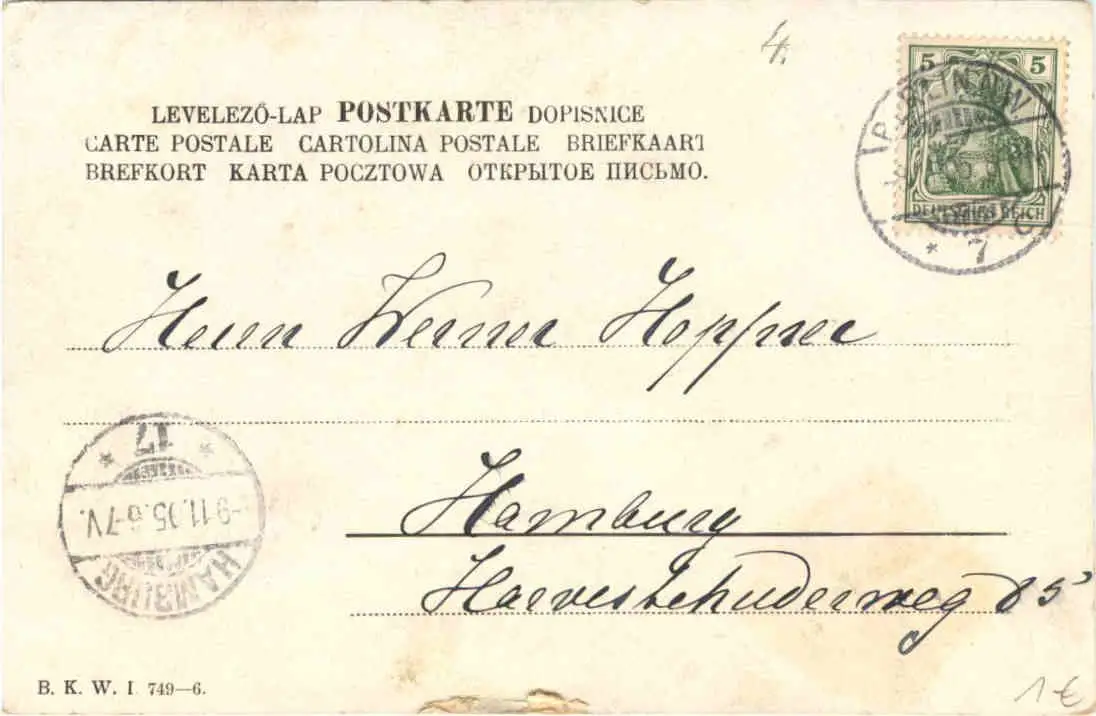 4.
5 5
DEUTSCHES REICH
BERLIN NW
* 7
LEVELEZŐ-LAP POSTKARTE DOPISNICE
CARTE POSTALE CARTOLINA POSTALE BRIEFKAART
BREFKORT KARTA POCZTOWA ОТКРЫТОЕ ПИСЬМО.
Herrn Werner Hopfner
Hamburg
Harvestehuderweg 85
* 17 *
-9.11.05.6-7V.
HAMBURG
B. K. W. I 749—6.
1 €